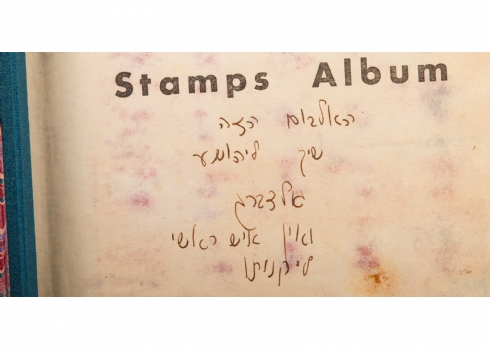 Stamps Album
האלבום הזה
שיך ליהושע
אלדברג
ואין איש ראשי
ליקנותו